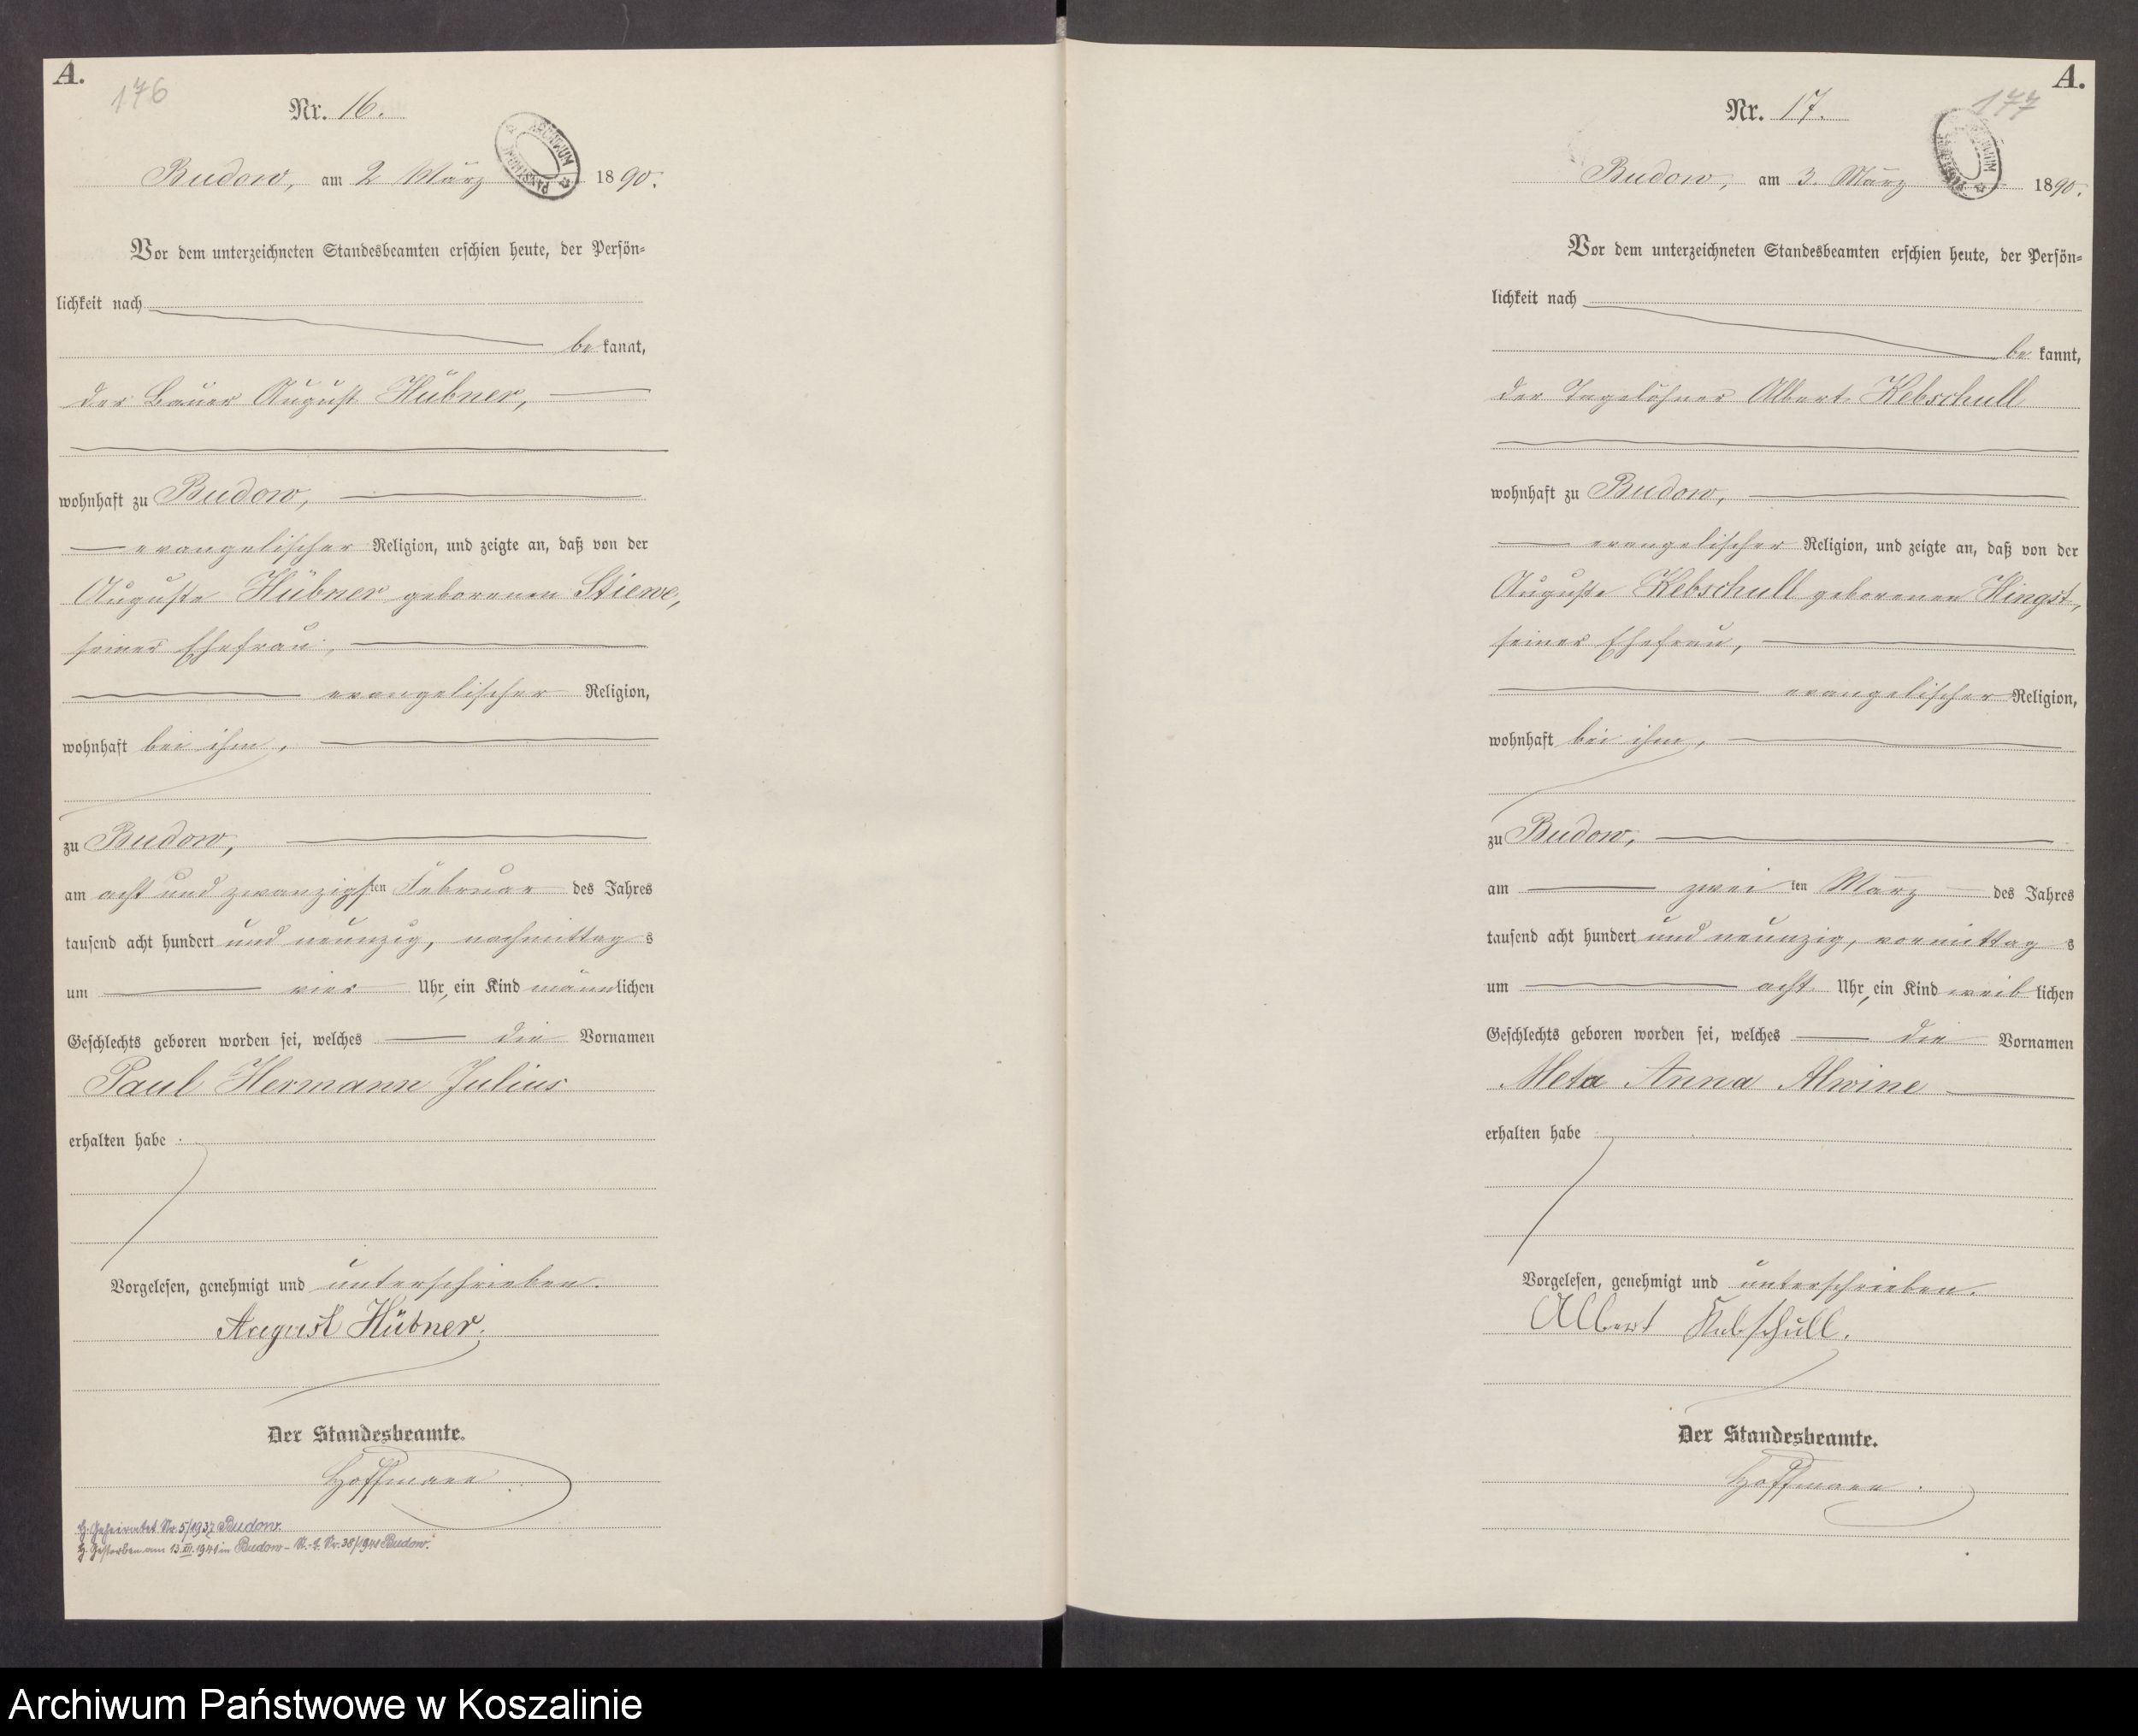 A.
176
Nr. 16.
ARCHIWUM PAŃSTWOWE
Budow, am 2 März 1890.
Vor dem unterzeichneten Standesbeamten erschien heute, der Persön-
lichkeit nach
be kannt,
der Bauer August Hübner,
wohnhaft zu Budow,
evangelischer Religion, und zeigte an, daß von der
Auguste Hübner geborenen Stiewe,
seiner Ehefrau,
evangelischer Religion,
wohnhaft bei ihm,
zu Budow,
am acht und zwanzigsten Februar des Jahres
tausend acht hundert und neunzig, nachmittag s
um vier Uhr, ein Kind männlichen
Geschlechts geboren worden sei, welches die Vornamen
Paul Hermann Julius
erhalten habe
Vorgelesen, genehmigt und unterschrieben.
August Hübner.
Der Standesbeamte.
Hoffmann
G. Geheiratet Nr. 5/1937 Budow.
G. Gestorben am 13.XII.1941 in Budow - St.-A. Nr. 38/1941 Budow.
A.
177
Nr. 17.
Budow, am 3. März 1890.
Vor dem unterzeichneten Standesbeamten erschien heute, der Persön-
lichkeit nach
be kannt,
der Tagelöhner Albert Kebschull
wohnhaft zu Budow,
evangelischer Religion, und zeigte an, daß von der
Auguste Kebschull geborenen Hingst,
seiner Ehefrau,
evangelischer Religion,
wohnhaft bei ihm,
zu Budow,
am zwei ten März des Jahres
tausend acht hundert und neunzig, vormittag s
um acht Uhr, ein Kind weib lichen
Geschlechts geboren worden sei, welches die Vornamen
Meta Anna Alwine
erhalten habe
Vorgelesen, genehmigt und unterschrieben.
Albert Kebschull.
Der Standesbeamte.
Hoffmann.
Archiwum Państwowe w Koszalinie